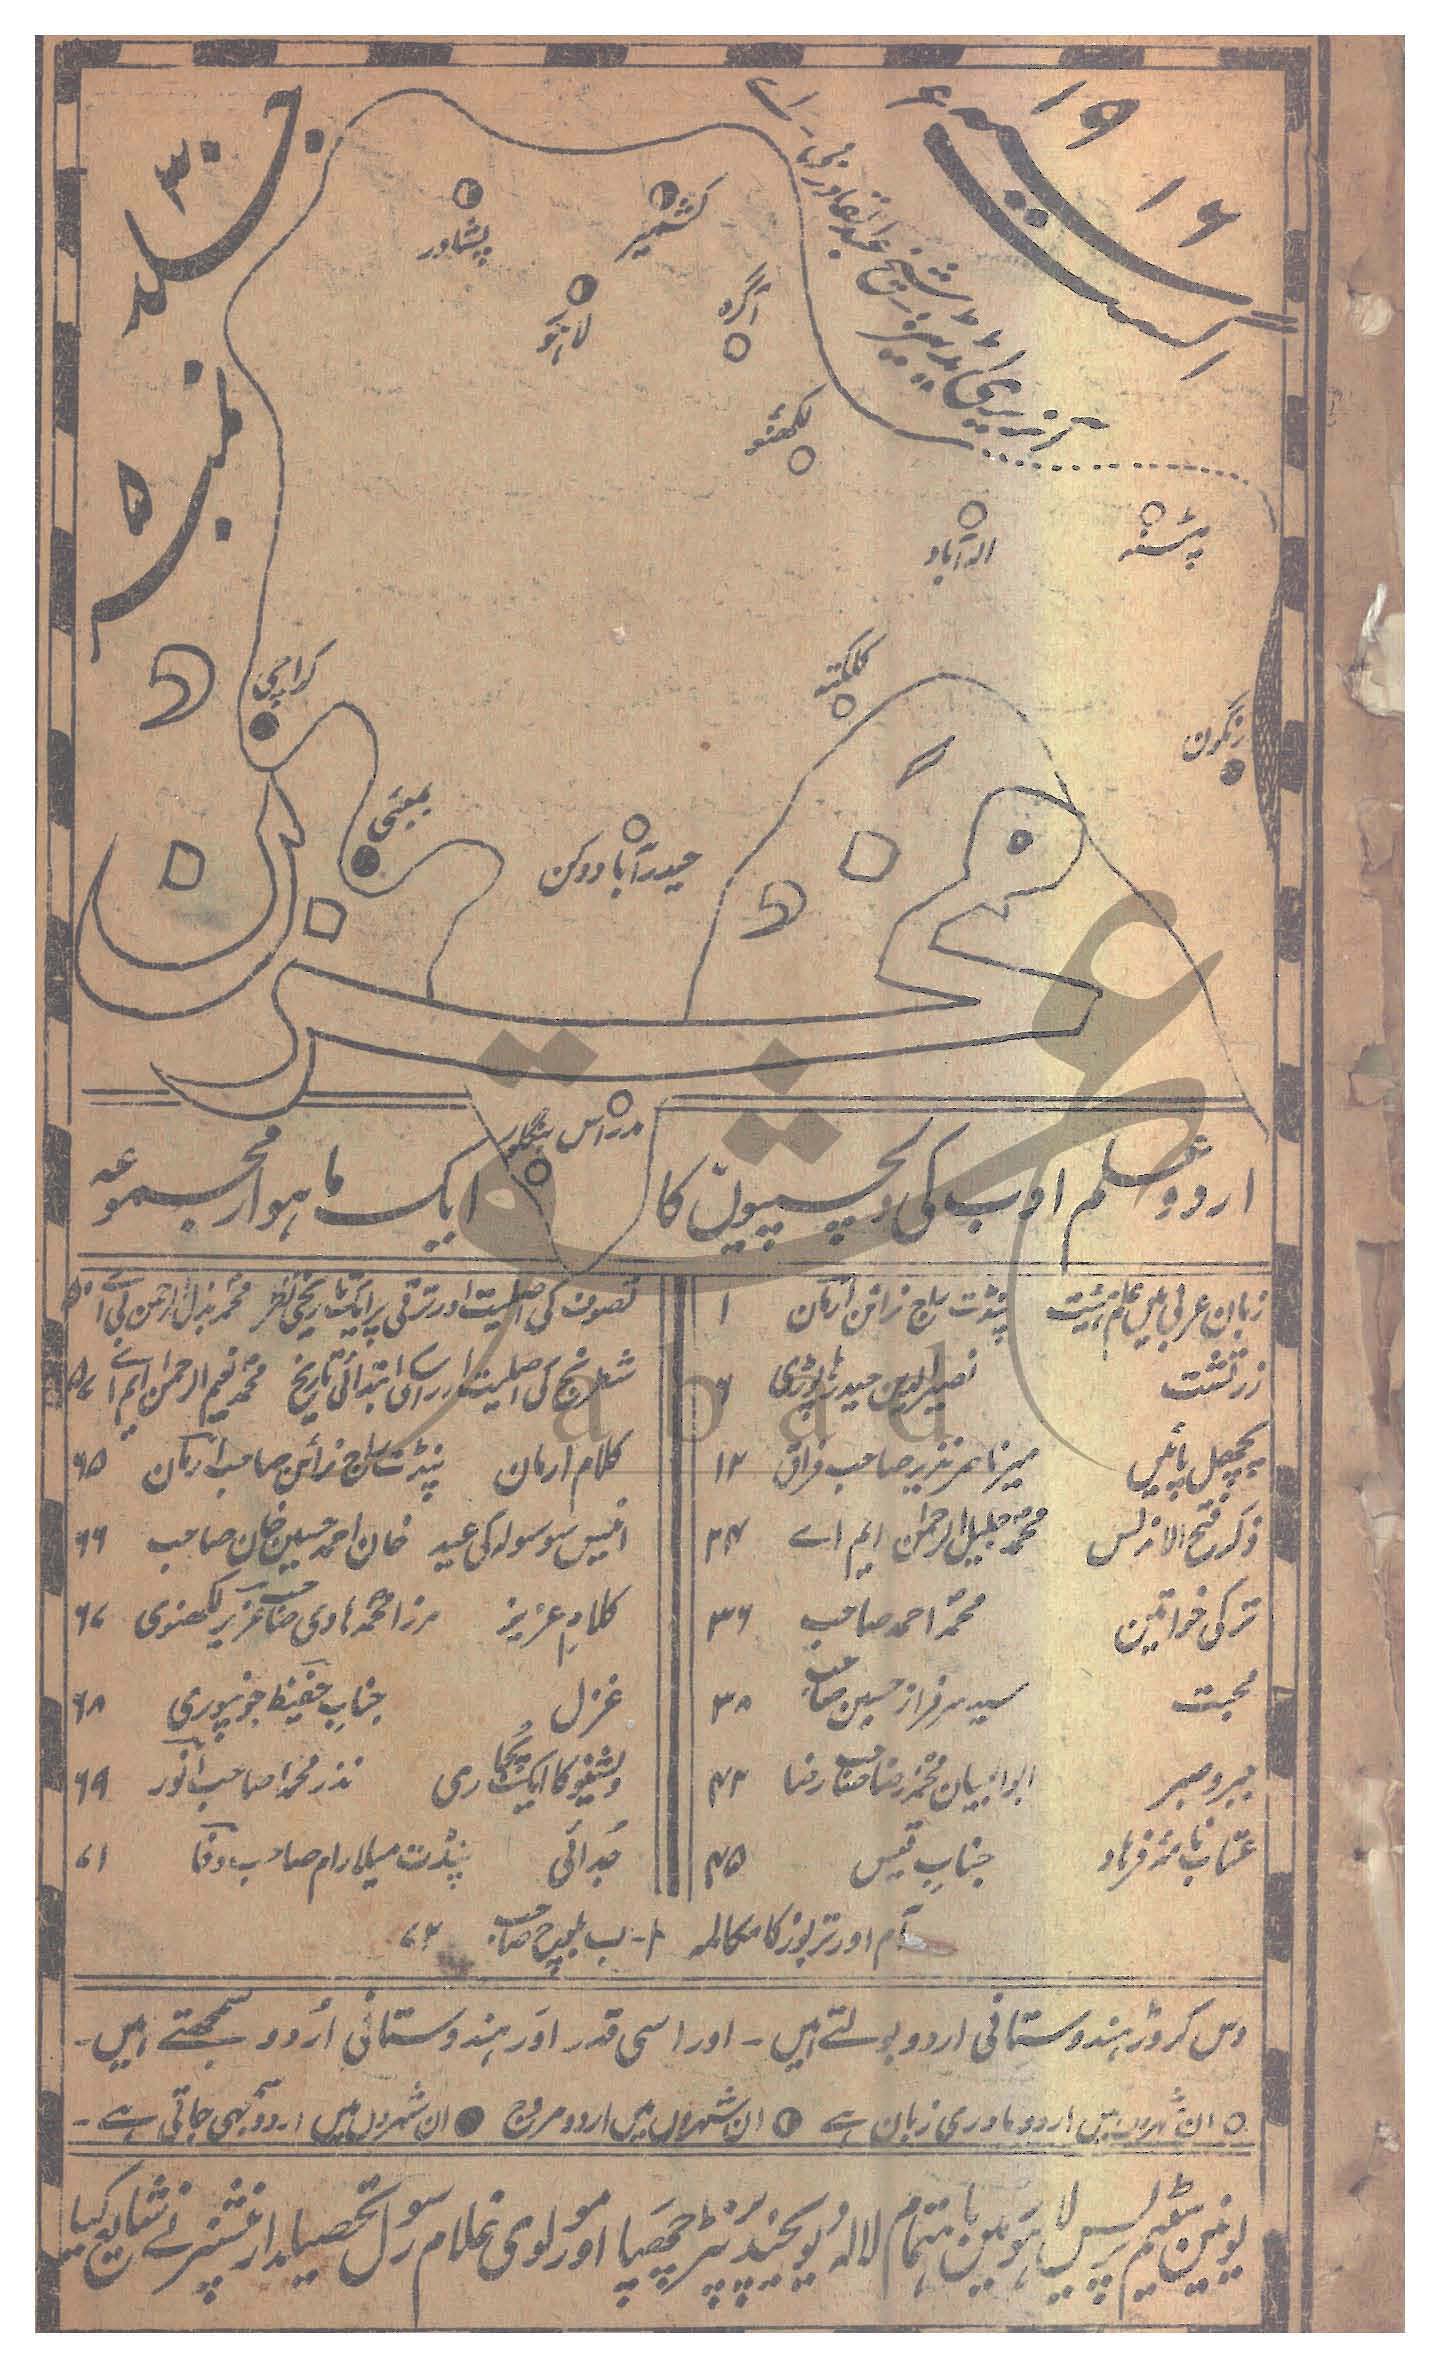 اگست ۱۹۱۶ء
آنریری ایڈیٹر شیخ عبدالقادر بی اے
جلد ۳۰
نمبر ۵
پشاور
کشمیر
لاہور
آگرہ
لکھنؤ
الہ آباد
پٹنہ
کراچی
کلکتہ
رنگون
بمبئی
حیدرآباد دکن
مخزن
مدراس
بنگلور
اردو علم ادب کی دلچسپیوں کا ایک ماہوار مجموعہ
زبان عربی میں علم ہیئت پنڈت راج نرائن ارمان ۱
زرتشت نصیرالدین حیدر ۶
پچھل پائیں میر ناصر نذیر صاحب فراق ۱۲
ذکر فتح الاندلس محمد جلیل الرحمٰن ایم اے ۲۴
ترکی خواتین محمد احمد صاحب ۳۶
محبت سید سرفراز حسین صاحب ۳۸
جبر و صبر ابوالبیان محمد رضا صاحب رضا ۴۲
عتاب نامۂ فرہاد جناب قیس ۴۵
تصوف کی اصلیت اور ترقی پر ایک تاریخی نظر محمد بذل الرحمٰن بی اے ۵۰
شطرنج کی اصلیت اور اس کی ابتدائی تاریخ محمد نعیم الرحمٰن ایم اے ۵۷
کلام ارمان پنڈت راج نرائن صاحب ارمان ۶۵
انیس سو سولہ کی عید خان احمد حسین خان صاحب ۶۶
کلام عزیز مرزا محمد ہادی صاحب عزیز لکھنوی ۶۷
غزل جناب حفیظ جونپوری ۶۸
وشنو کا ایک پجاری نذر محمد صاحب انور ۶۹
جدائی پنڈت میلا رام صاحب وفا ۷۱
آم اور تربوز کا مکالمہ ا۔ ب بلیح صاحب ۷۲
دس کروڑ ہندوستانی اردو بولتے ہیں۔ اور اسی قدر اور ہندوستانی اُردو سمجھتے ہیں۔
ان شہروں میں اردو مادری زبان ہے ان شہروں میں اردو مروج ان شہروں میں اردو سمجھی جاتی ہے۔
یونین سٹیم پریس لاہور میں باہتمام لالہ دیوی چند پرنٹر چھپا اور مولوی غلام رسول تحصیلدار پنشنر نے شایع کیا
عشرت
abad